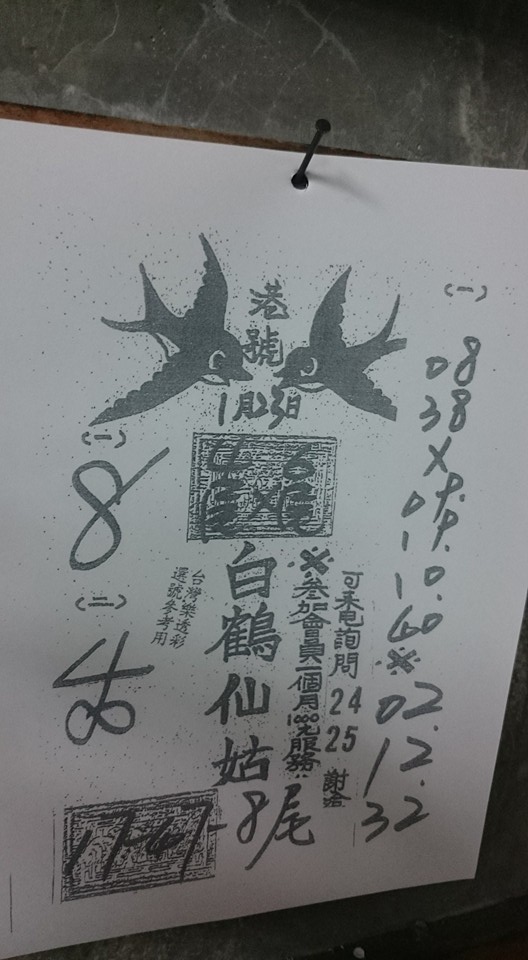 港號
1月23日
(一)
08
38
X
01
10.
40
※
02.
12.
32
(一)
8
(二)
4尾X6尾
白鶴仙姑
※參加會員一個月1000元服務
可來電詢問 24 25 謝洽
台灣樂透彩
選號參考用
17-47-8尾